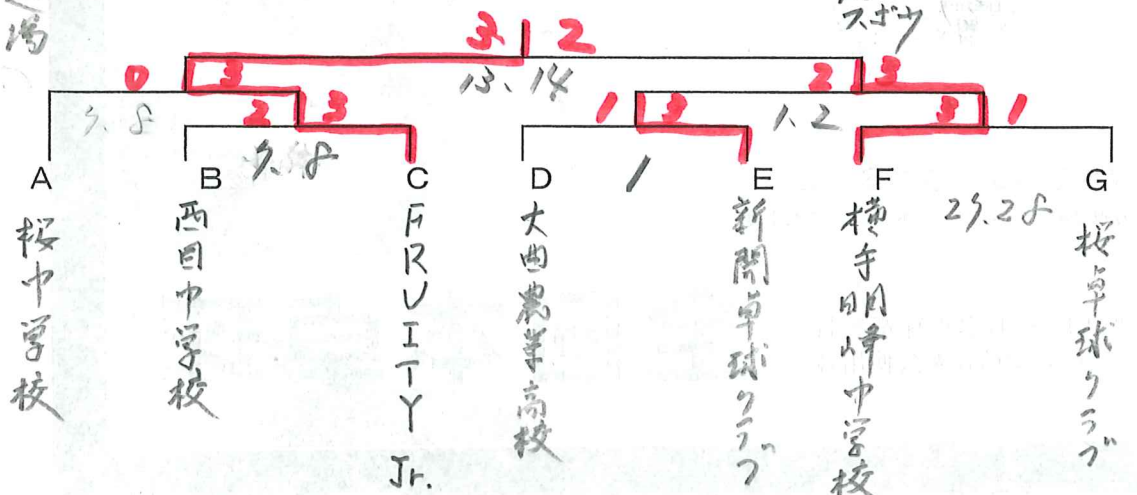 場
スポウ
3 2
13、14
0 3
2 3
7、8
2 3
7、8
1 3
1、2
3 1
1
27、28
A B C D E F G
桜中学校
西目中学校
FRUITY Jr.
大曲農業高校
新関卓球クラブ
横手明峰中学校
桜卓球クラブ